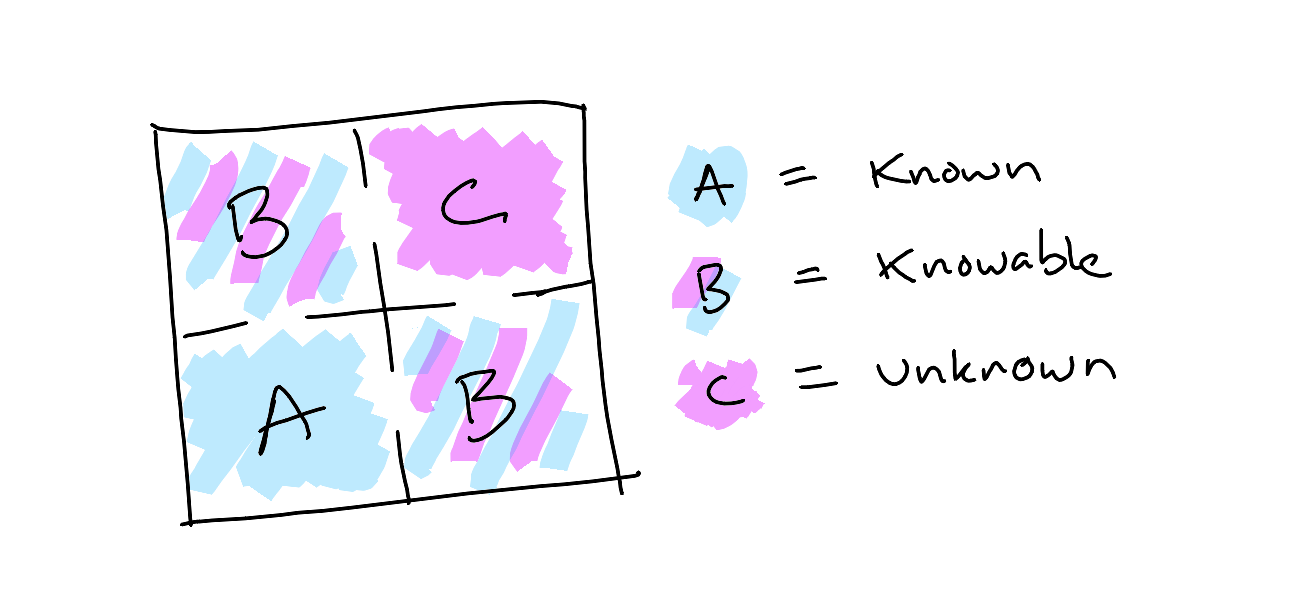 B C
A B
A = Known
B = Knowable
C = unknown